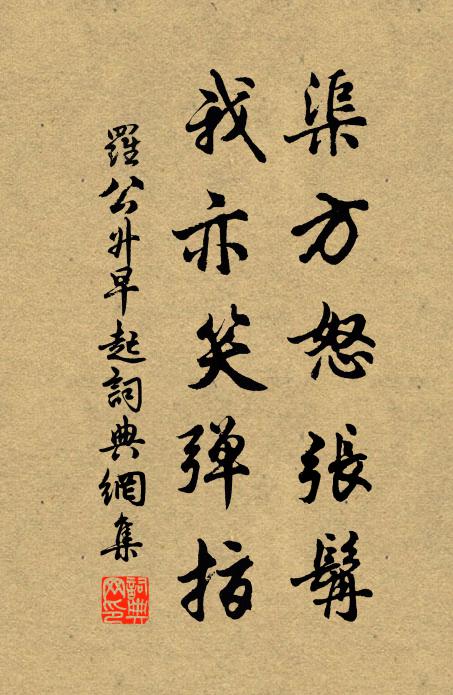 渠方怒張髯
我亦笑弹指
羅公升早起詞典網集
詞典网印